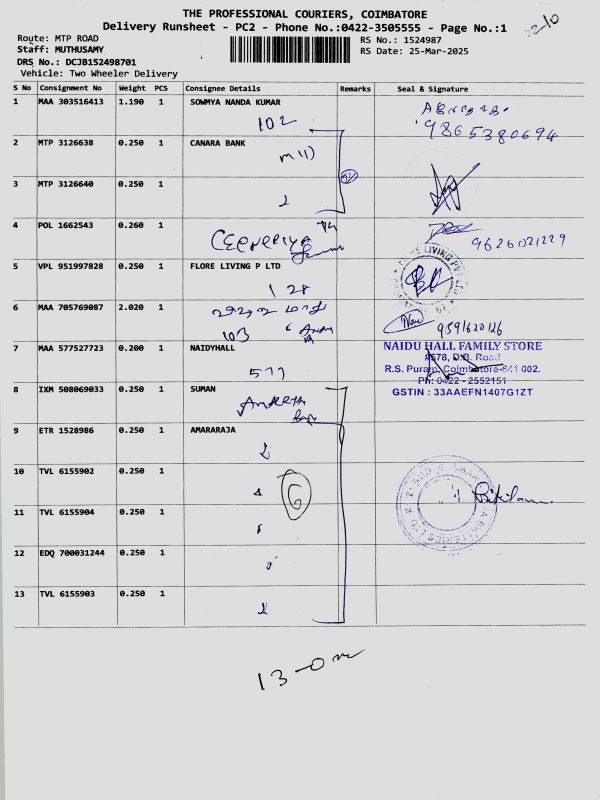 THE PROFESSIONAL COURIERS, COIMBATORE
Delivery Runsheet - PC2 - Phone No.:0422-3505555 - Page No.:1
Route: MTP ROAD
RS No.: 1524987
Staff: MUTHUSAMY
RS Date: 25-Mar-2025
DRS No.: DCJB152498701
Vehicle: Two Wheeler Delivery
S No Consignment No Weight PCS Consignee Details Remarks Seal & Signature
1 MAA 303516413 1.190 1 SOWMYA NANDA KUMAR
102
9865380694
2 MTP 3126638 0.250 1 CANARA BANK
3 MTP 3126640 0.250 1
4 POL 1662543 0.260 1
9626021229
5 VPL 951997828 0.250 1 FLORE LIVING P LTD
128
6 MAA 705769087 2.020 1
103
9591620126
7 MAA 577527723 0.200 1 NAIDYHALL
577
NAIDU HALL FAMILY STORE
#578, D.B. Road
R.S. Puram, Coimbatore-641 002.
Ph: 0422 - 2552151
GSTIN : 33AAEFN1407G1ZT
8 IXM 508069033 0.250 1 SUMAN
9 ETR 1528986 0.250 1 AMARARAJA
10 TVL 6155902 0.250 1
6
11 TVL 6155904 0.250 1
12 EDQ 700031244 0.250 1
13 TVL 6155903 0.250 1